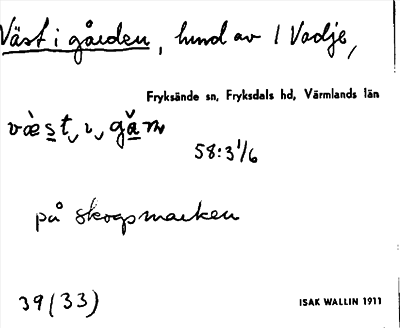 Väst i gården, hmd av 1 Vadje,
Fryksände sn, Fryksdals hd, Värmlands län
væ̀st ı gǻn
58:3 1/6
på skogsmarken
39 (33)
ISAK WALLIN 1911